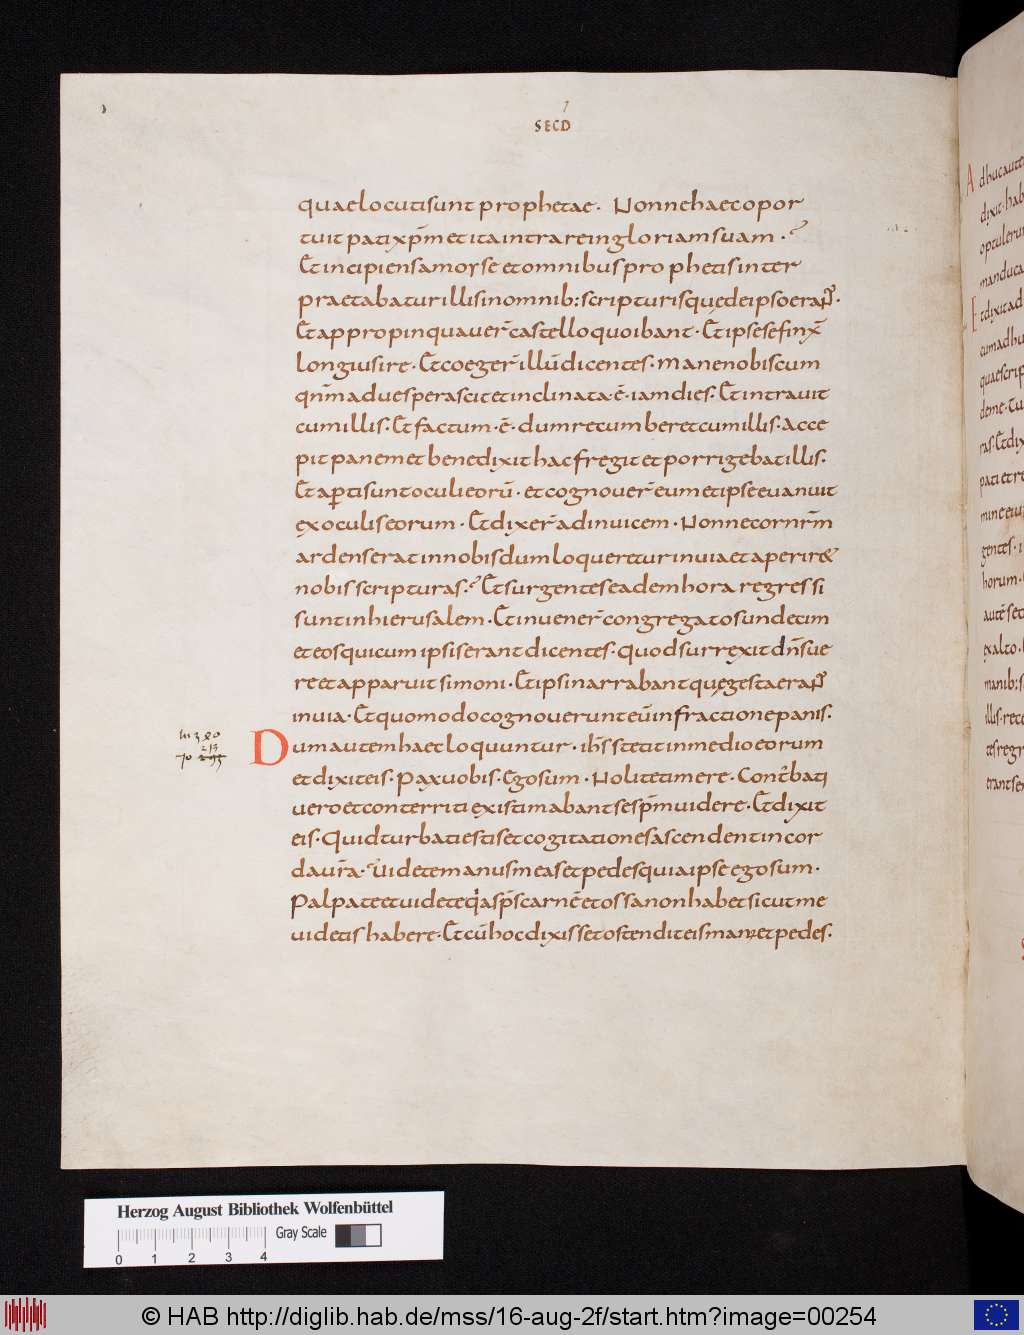 SECD
quae locuti sunt prophetae. Nonne haec opor
tuit pati xp̄m et ita intrare in gloriam suam.
Et incipiens a moyse et omnibus prophetis inter
praetabatur illis in omnib: scripturis quę de ipso erant.
Et appropinquauer̄ castello quo ibant. Et ipse se finx̄
longius ire. Et coeger̄ illū dicentes. Mane nobiscum
qn̄m aduesperascit et inclinata .ē. iam dies. Et intrauit
cum illis. Et factum .ē. dum recumberet cum illis. Acce
pit panem et benedixit hac fregit et porrigebat illis.
Et aperti sunt oculi eorū. et cognouer̄ eum et ipse euanuit
ex oculis eorum. Et dixer̄ ad inuicem. Nonne cor nr̄m
ardens erat in nobis dum loqueretur in uia et aperir&
nobis scripturas. Et surgentes eadem hora regressi
sunt in hierusalem. Et inuener̄ congregatos undecim
et eos qui cum ipsis erant dicentes. quod surrexit dn̄s ue
re et apparuit simoni. Et ipsi narrabant quę gesta erant
in uia. Et quomodo cognouerunt eū in fractione panis.
Dum autem haec loquuntur. ih̄s stetit in medio eorum
et dixit eis. Pax uobis. Ego sum. Nolite timere. Conturbati
uero et conterriti existimabant se sp̄m uidere. Et dixit
eis. Quid turbati estis et cogitationes ascendent in cor
da ur̄a. Uidete manus meas et pedes quia ipse ego sum.
Palpate et uidete quia sp̄s carnē et ossa non habet sicut me
uidetis habere. Et cū hoc dixisset ostendit eis man' et pedes.
Herzog August Bibliothek Wolfenbüttel
Gray Scale
0 1 2 3 4
© HAB http://diglib.hab.de/mss/16-aug-2f/start.htm?image=00254